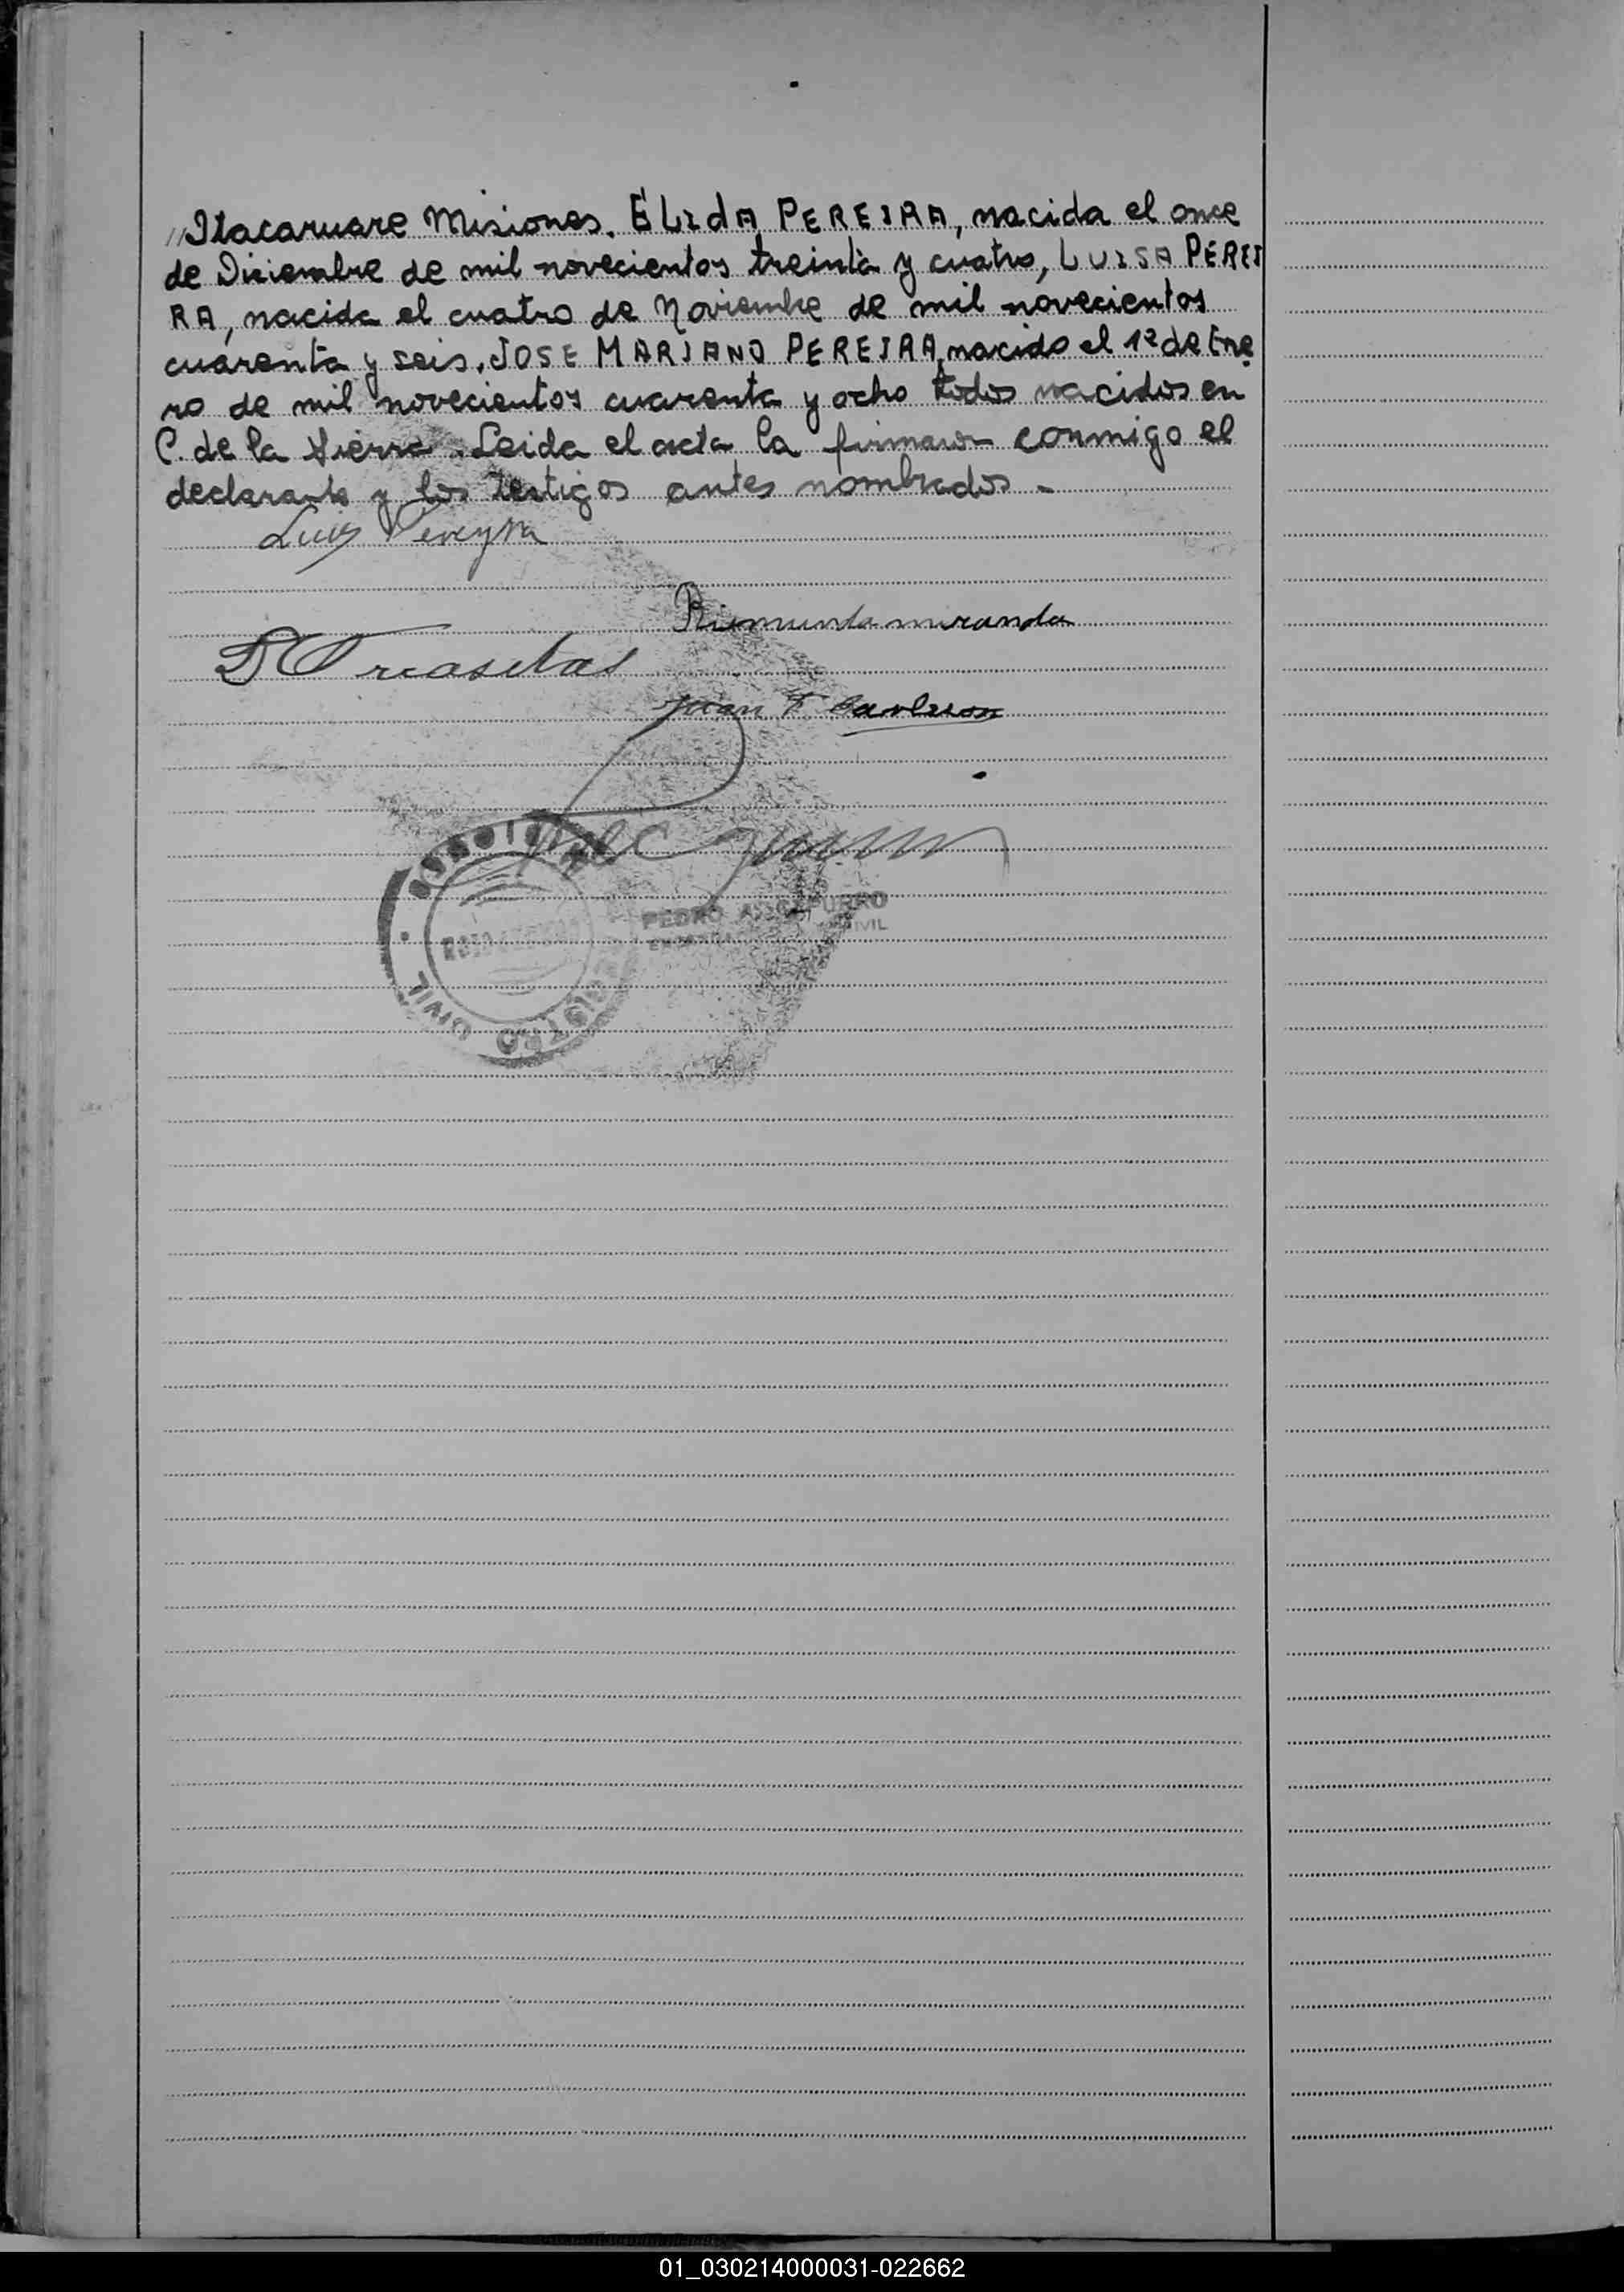 // Itacaruare Misiones. ELIdA PEREIRA, nacida el once
de Diciembre de mil novecientos treinta y cuatro, LUISA PEREI
RA, nacida el cuatro de Noviembre de mil novecientos
cuarenta y seis. JOSE MARIANO PEREIRA, nacido el 1º de Ene
ro de mil novecientos cuarenta y ocho todos nacidos en
C. de la Sierra. Leida el acta la firmaron conmigo el
declarante y los testigos antes nombrados.-
Luis Pereyra
Riemunda miranda
Juan F.
PEDRO
CIVIL
REGISTRO CIVIL
01_030214000031-022662